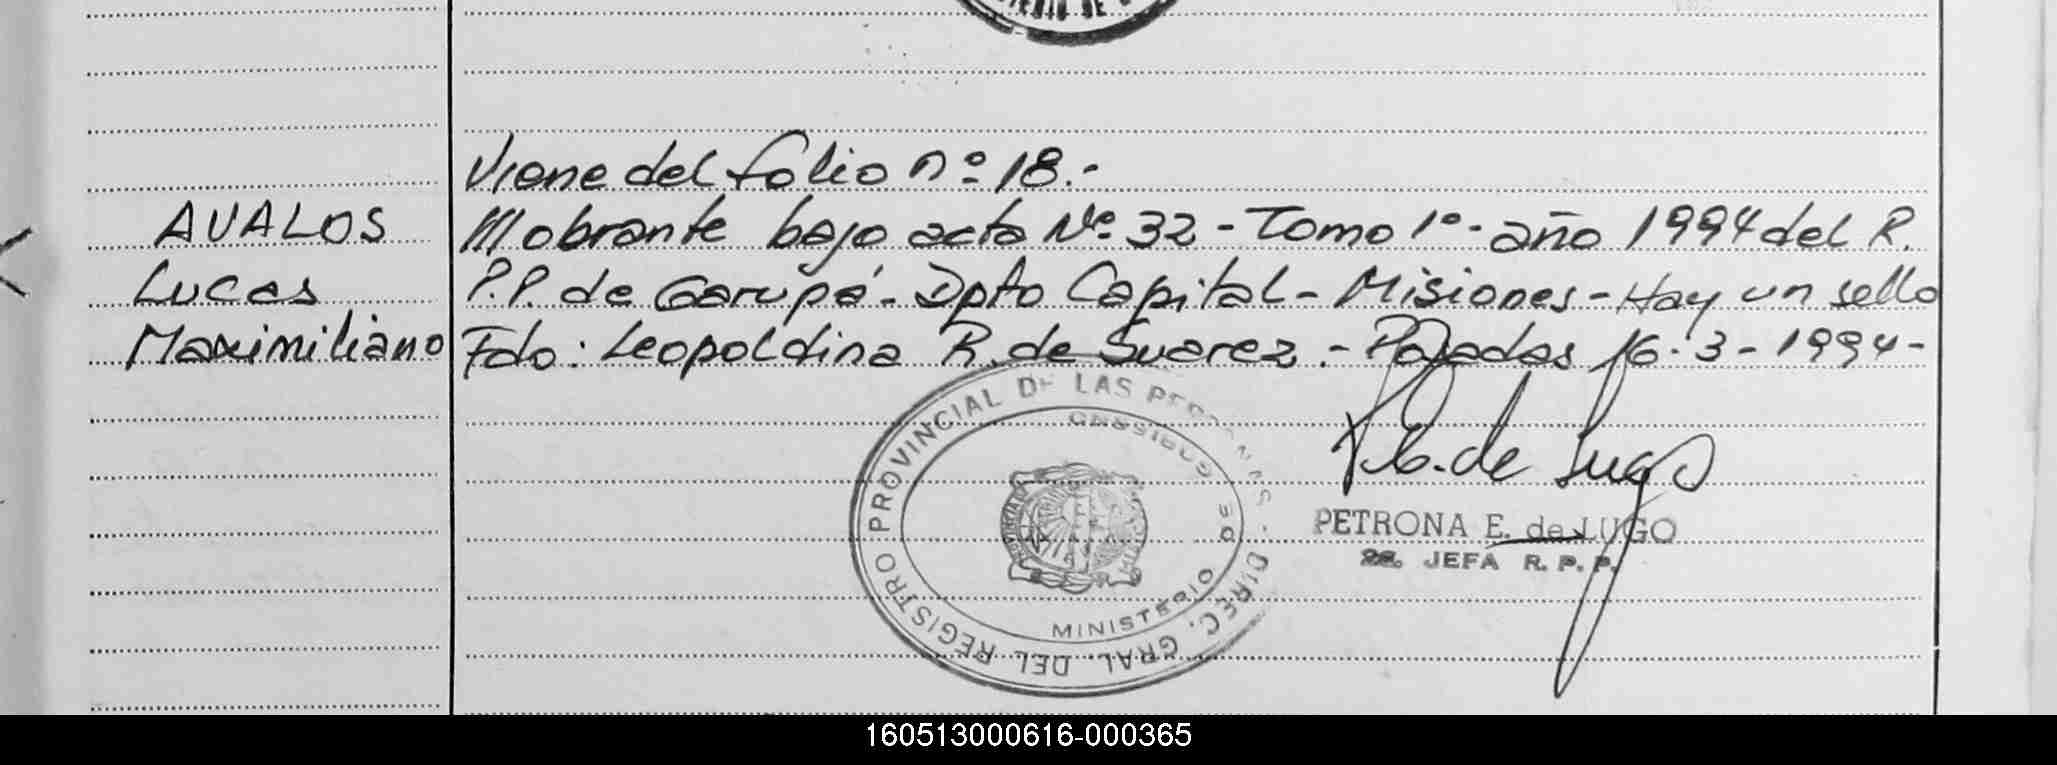 Viene del folio nº 18.-
AVALOS
obrante bajo acta Nº 32 - Tomo 1º - año 1994 del R.
Lucas
P.P. de Garupá - Dpto Capital - Misiones - Hay un sello
Maximiliano
Fdo: Leopoldina R. de Suarez. - Posadas 16-3-1994-
P.E. de Lugo
PETRONA E. de LUGO
JEFA R. P. P.
DIREC. GRAL. DEL REGISTRO PROVINCIAL DE LAS PERSONAS
MINISTERIO DE GOBIERNO
160513000616-000365